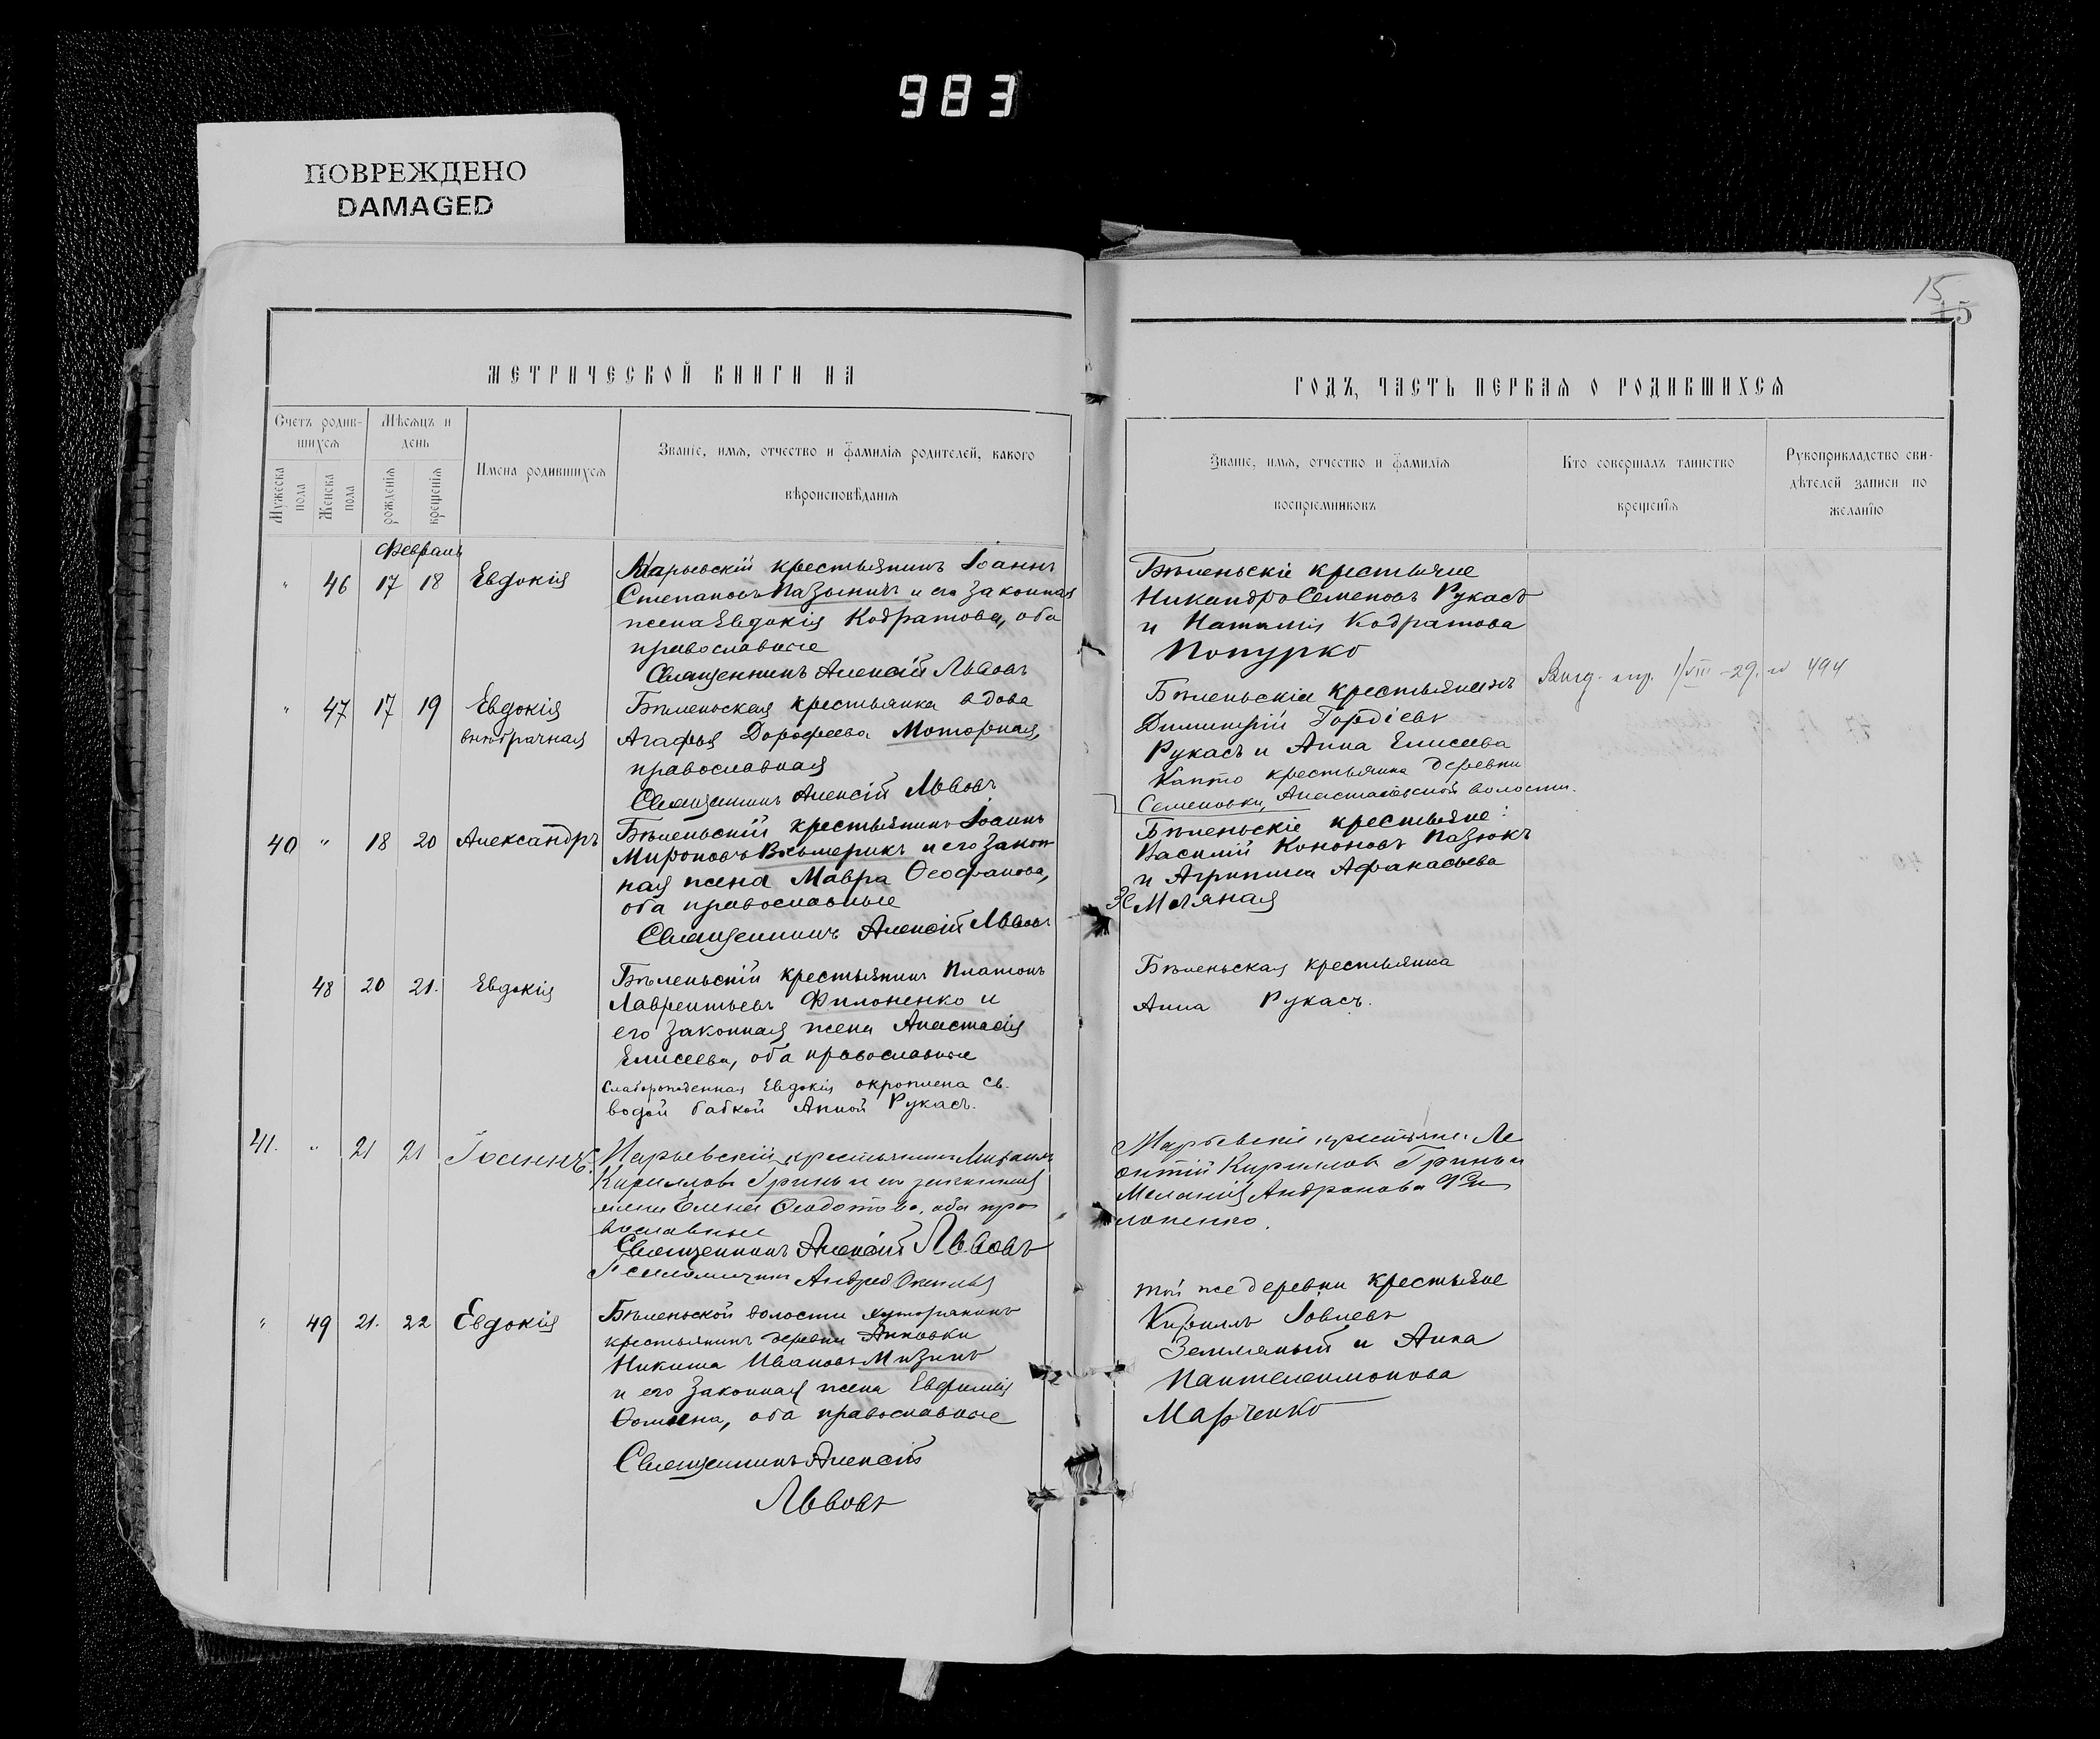 983
ПОВРЕЖДЕНО
DAMAGED
15
15
МЕТРИЧЕСКОЙ КНИГИ НА
ГОДЪ, ЧАСТЬ ПЕРВАЯ О РОДИВШИХСЯ
Счетъ родив-
шихся
Мужеска
пола
Женска
пола
Мѣсяцъ и
день
рожденія
крещенія
Имена родившихся
Званіе, имя, отчество и фамилія родителей, какого
вѣроисповѣданія
Званіе, имя, отчество и фамилія
воспріемниковъ
Кто совершалъ таинство
крещенія
Рукоприкладство сви-
дѣтелей записи по
желанію
Февраль
" 46 17 18 Евдокія
Марьевскій крестьянинъ Іоаннъ
Степановъ и его законная
жена Евдокія Кодратова, оба
православные
Священникъ Алексій Львовъ
Бѣленьскіе крестьяне
Никандръ Семеновъ Рукасъ
и Наталія Кодратова
Попурко
" 47 17 19 Евдокія
внѣбрачная
Бѣленьская крестьянка вдова
Агафья Дорофеева Моторная,
православная
Священникъ Алексій Львовъ
Бѣленьскіе крестьянинъ
Димитрій Гордіевъ
Рукасъ и Анна Елисеева
Капто крестьянка деревни
Семеновки, Анастасьевской волости.
29. № 494
40 " 18 20 Александръ
Бѣленьскій крестьянинъ Іоаннъ
Мироновъ Вхъмерикъ и его закон
ная жена Мавра Ѳеофанова,
оба православные
Священникъ Алексій Львовъ
Бѣленьскіе крестьяне:
Василій Кононовъ Пазюкъ
и Агрипина Афанасьева
Земляная
48 20 21. Евдокія
Бѣленьскій крестьянинъ Платонъ
Лаврентьевъ Филоненко и
его законная жена Анастасія
Елисеева, оба православные
Слаборожденная Евдокія окроплена св.
водой бабкой Анной Рукасъ.
Бѣленьская крестьянка
Анна Рукасъ.
41. " 21 21 Іоаннъ.
Марьевскій крестьянинъ Михаилъ
Кирилловъ Гринь и его законная
жена Елена Ѳеодотова, оба пра
вославные
Священникъ Алексій Львовъ
Псаломщикъ Андрей
Марьевскіе крестьяне: Ле
онтій Кирилловъ Гринь и
Меланія Андронова Фи
лоненко.
" 49 21. 22 Евдокія
Бѣленьской волости хуторянинъ
крестьянинъ деревни Анновки
Никита Ивановъ Мизинъ
и его законная жена Евфимія
Ѳомина, оба православные
Священникъ Алексій
Львовъ
той же деревни крестьяне
Кириллъ Іовлевъ
Земляный и Анна
Пантелеимонова
Марченко